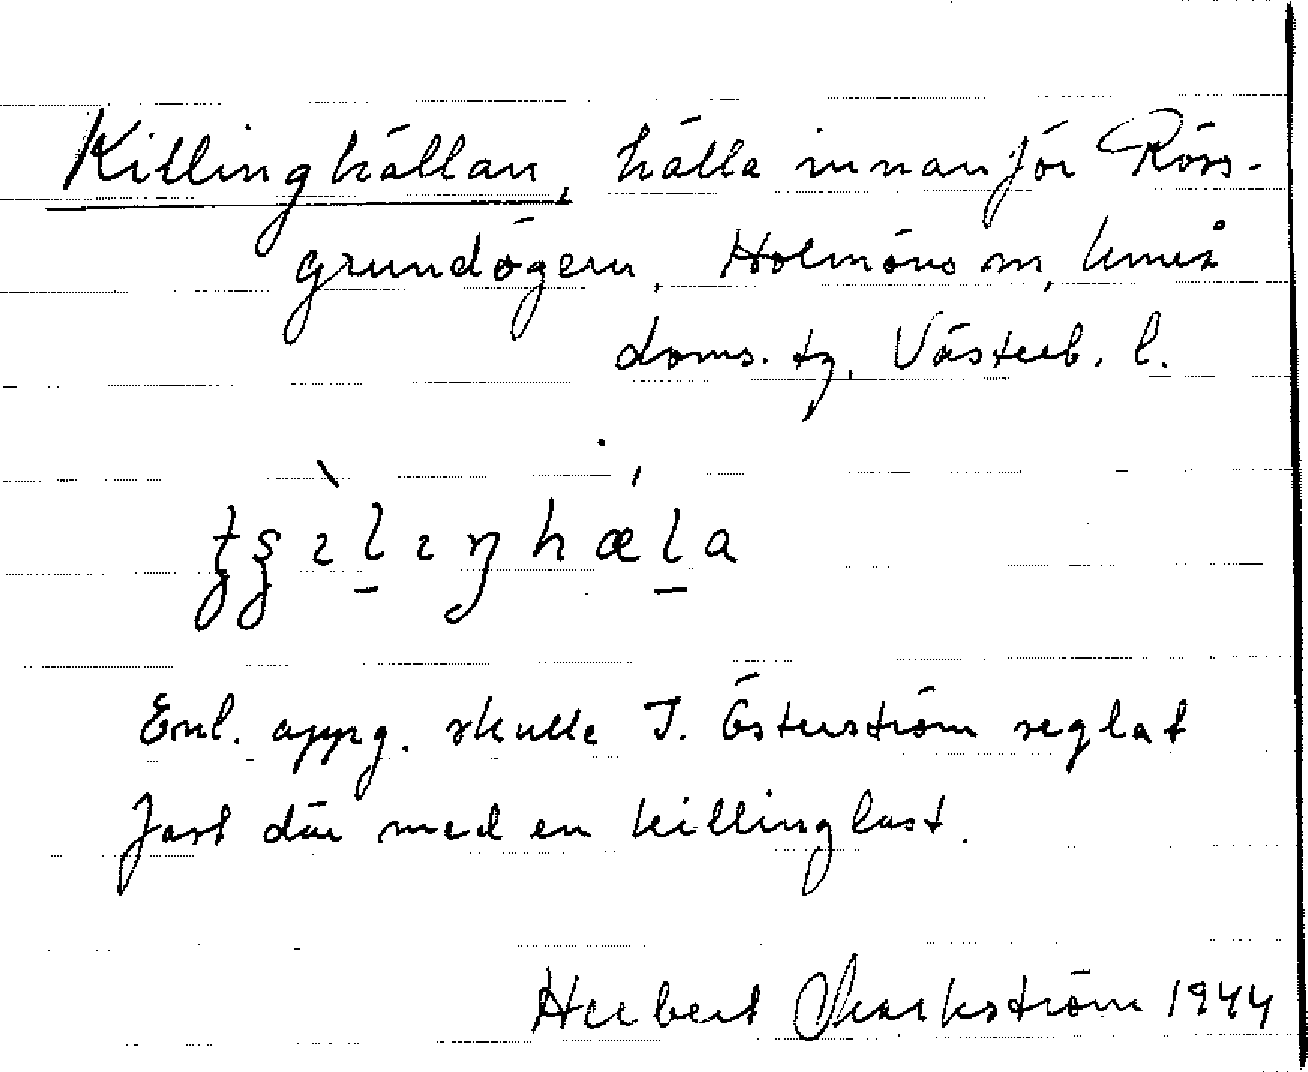 Killinghällan, hälla innanför Rörs-
grundögern, Holmöns sn, Umeå
doms. tg, Västerb. l.
Enl. uppg. skulle J. Österström seglat
fast där med en killinglast.
Herbert Markström 1944